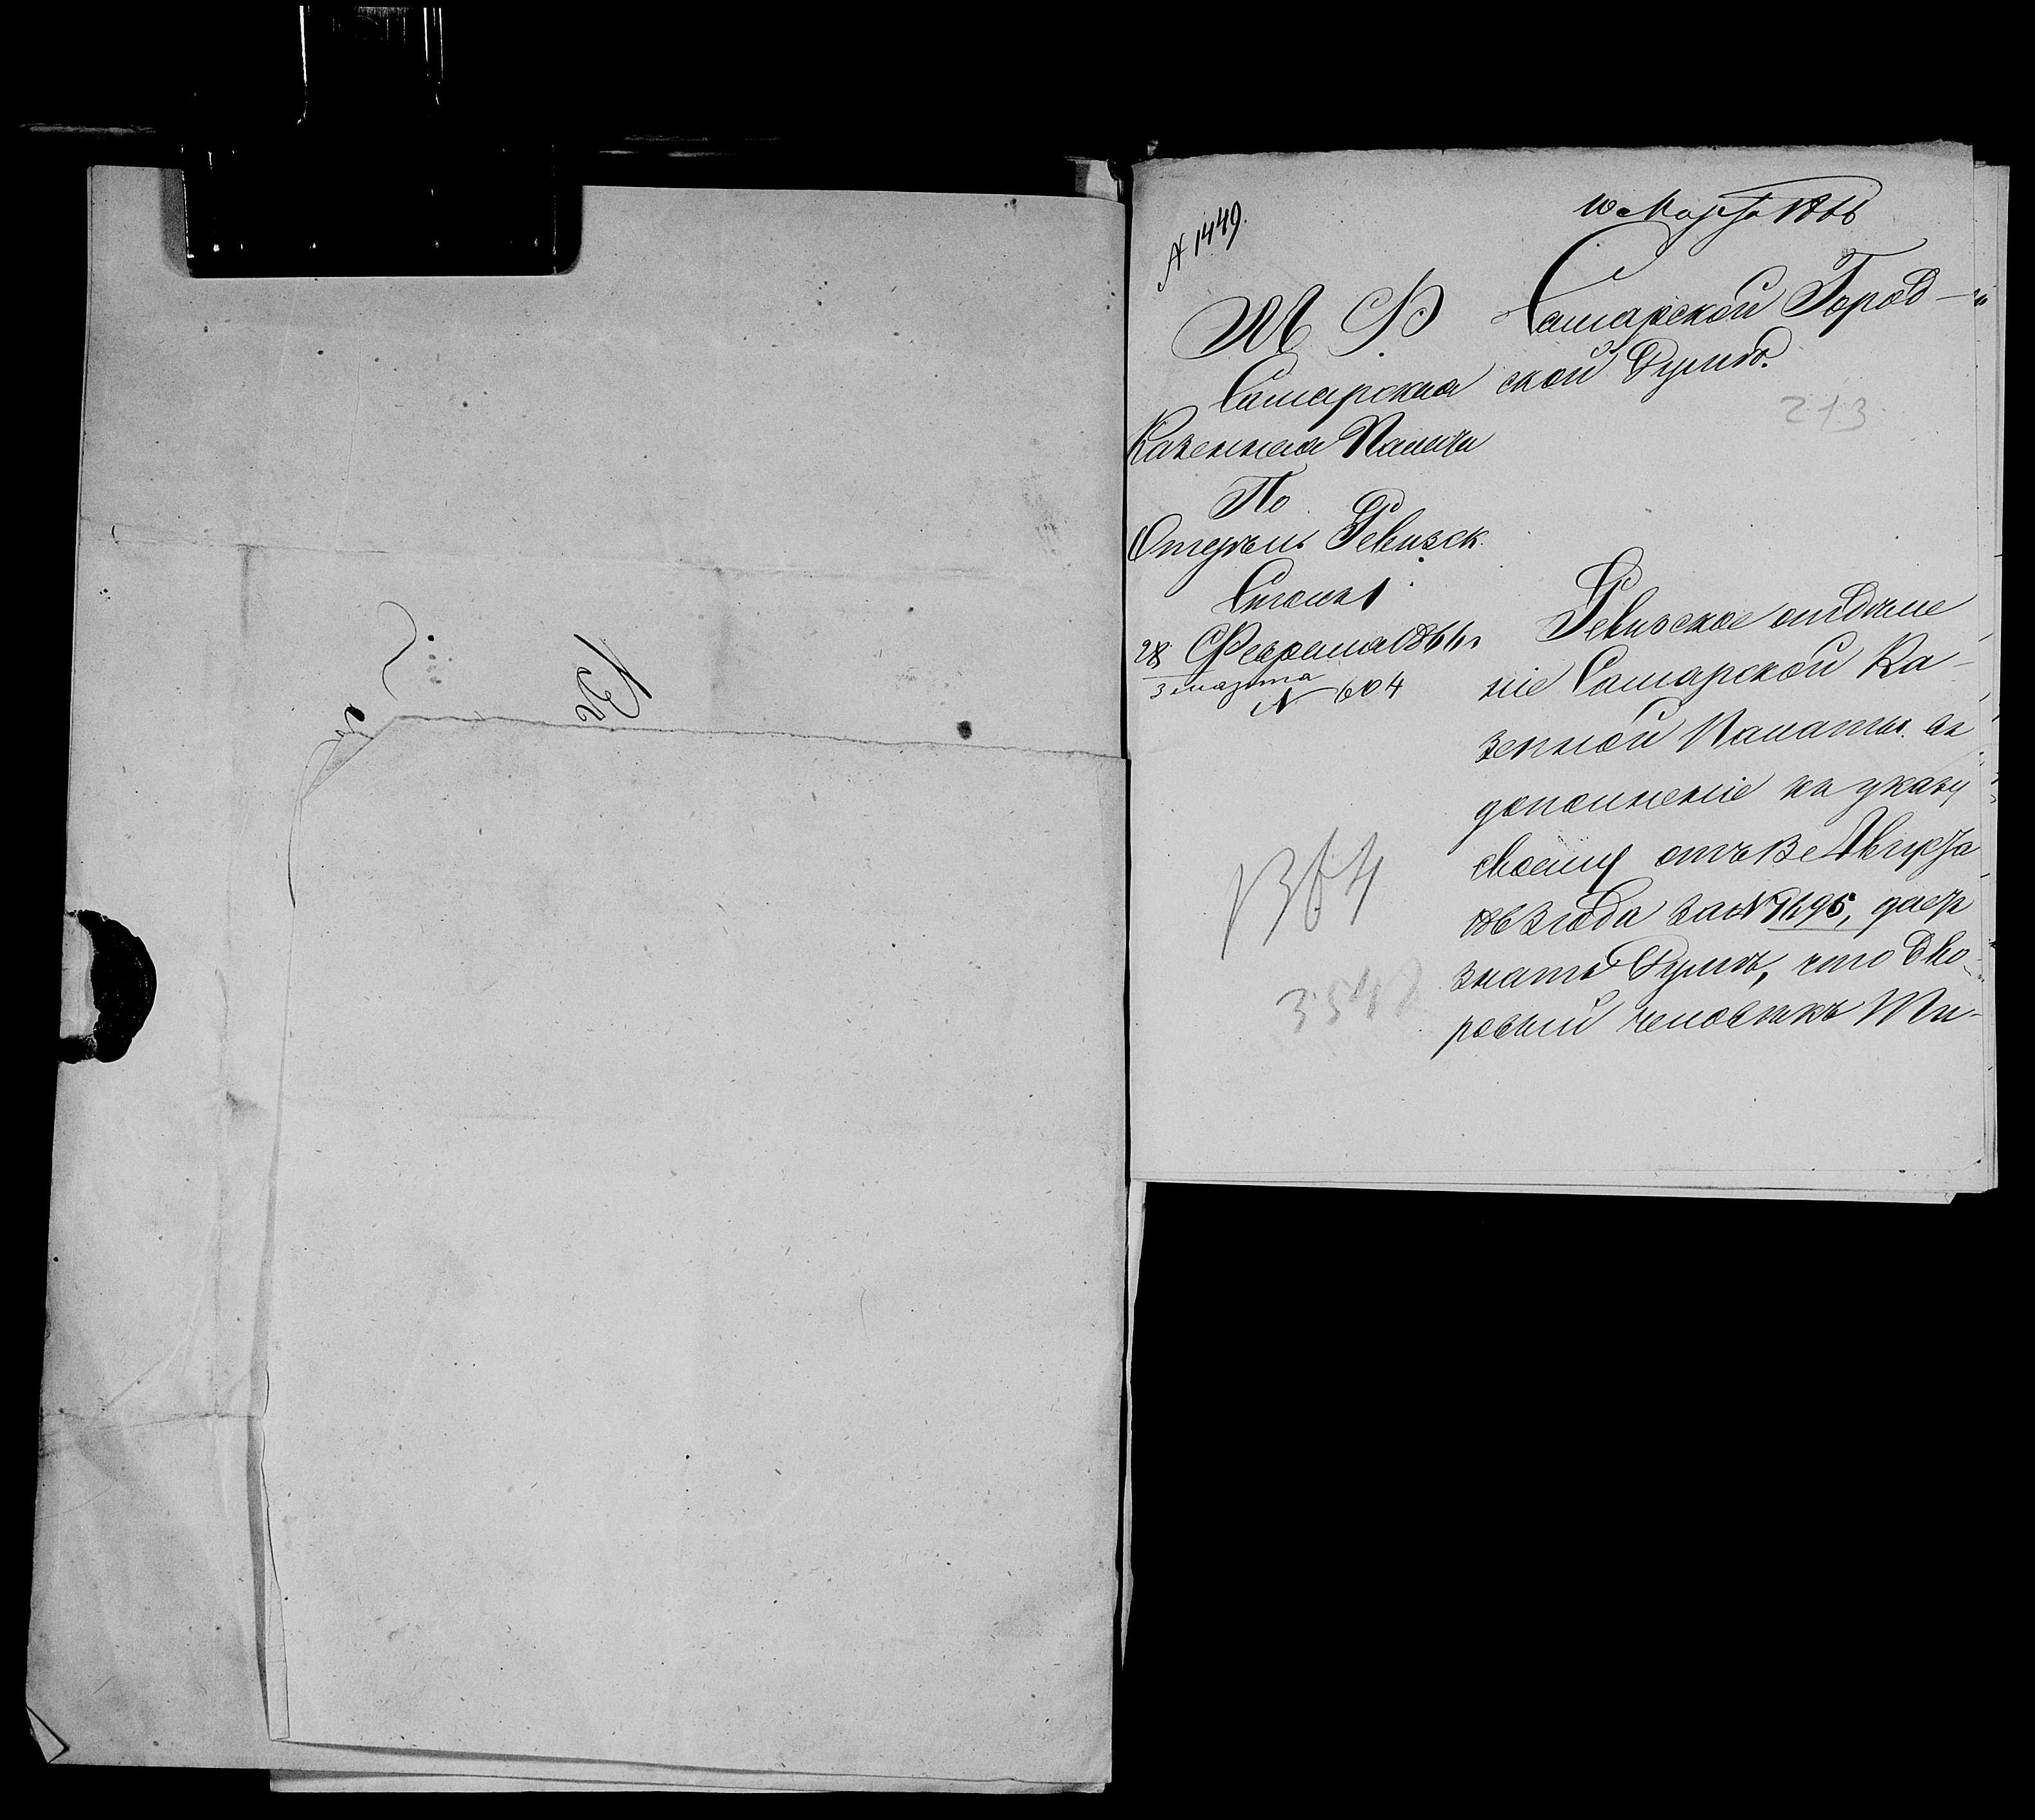 № 1449.
10 Марта 1866
М Ф
Самарская
Казенная Палата
По
Отдѣлъ. Ревизск.
Столъ 1
28 Февраля 1866 г
3 марта
№ 604
1364
Самарской Город-
ской Думѣ.
213
Ревизское отдѣле
ніе Самарской Ка-
зенной Палаты въ
дополненіе къ указу
своему отъ 13 Августа
1863 года за № 7695, даетъ
знать Думѣ, что дво-
ровый человѣкъ Ти-